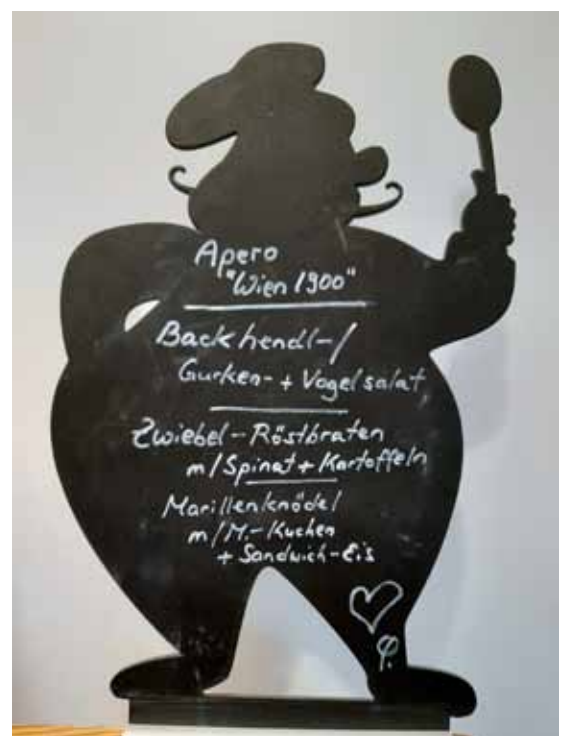 Apero
"Wien 1900"
Backhendl-/
Gurken- + Vogelsalat
Zwiebel-Röstbraten
m/Spinat + Kartoffeln
Marillenknödel
m/M.-Kuchen
+ Sandwich-Eis